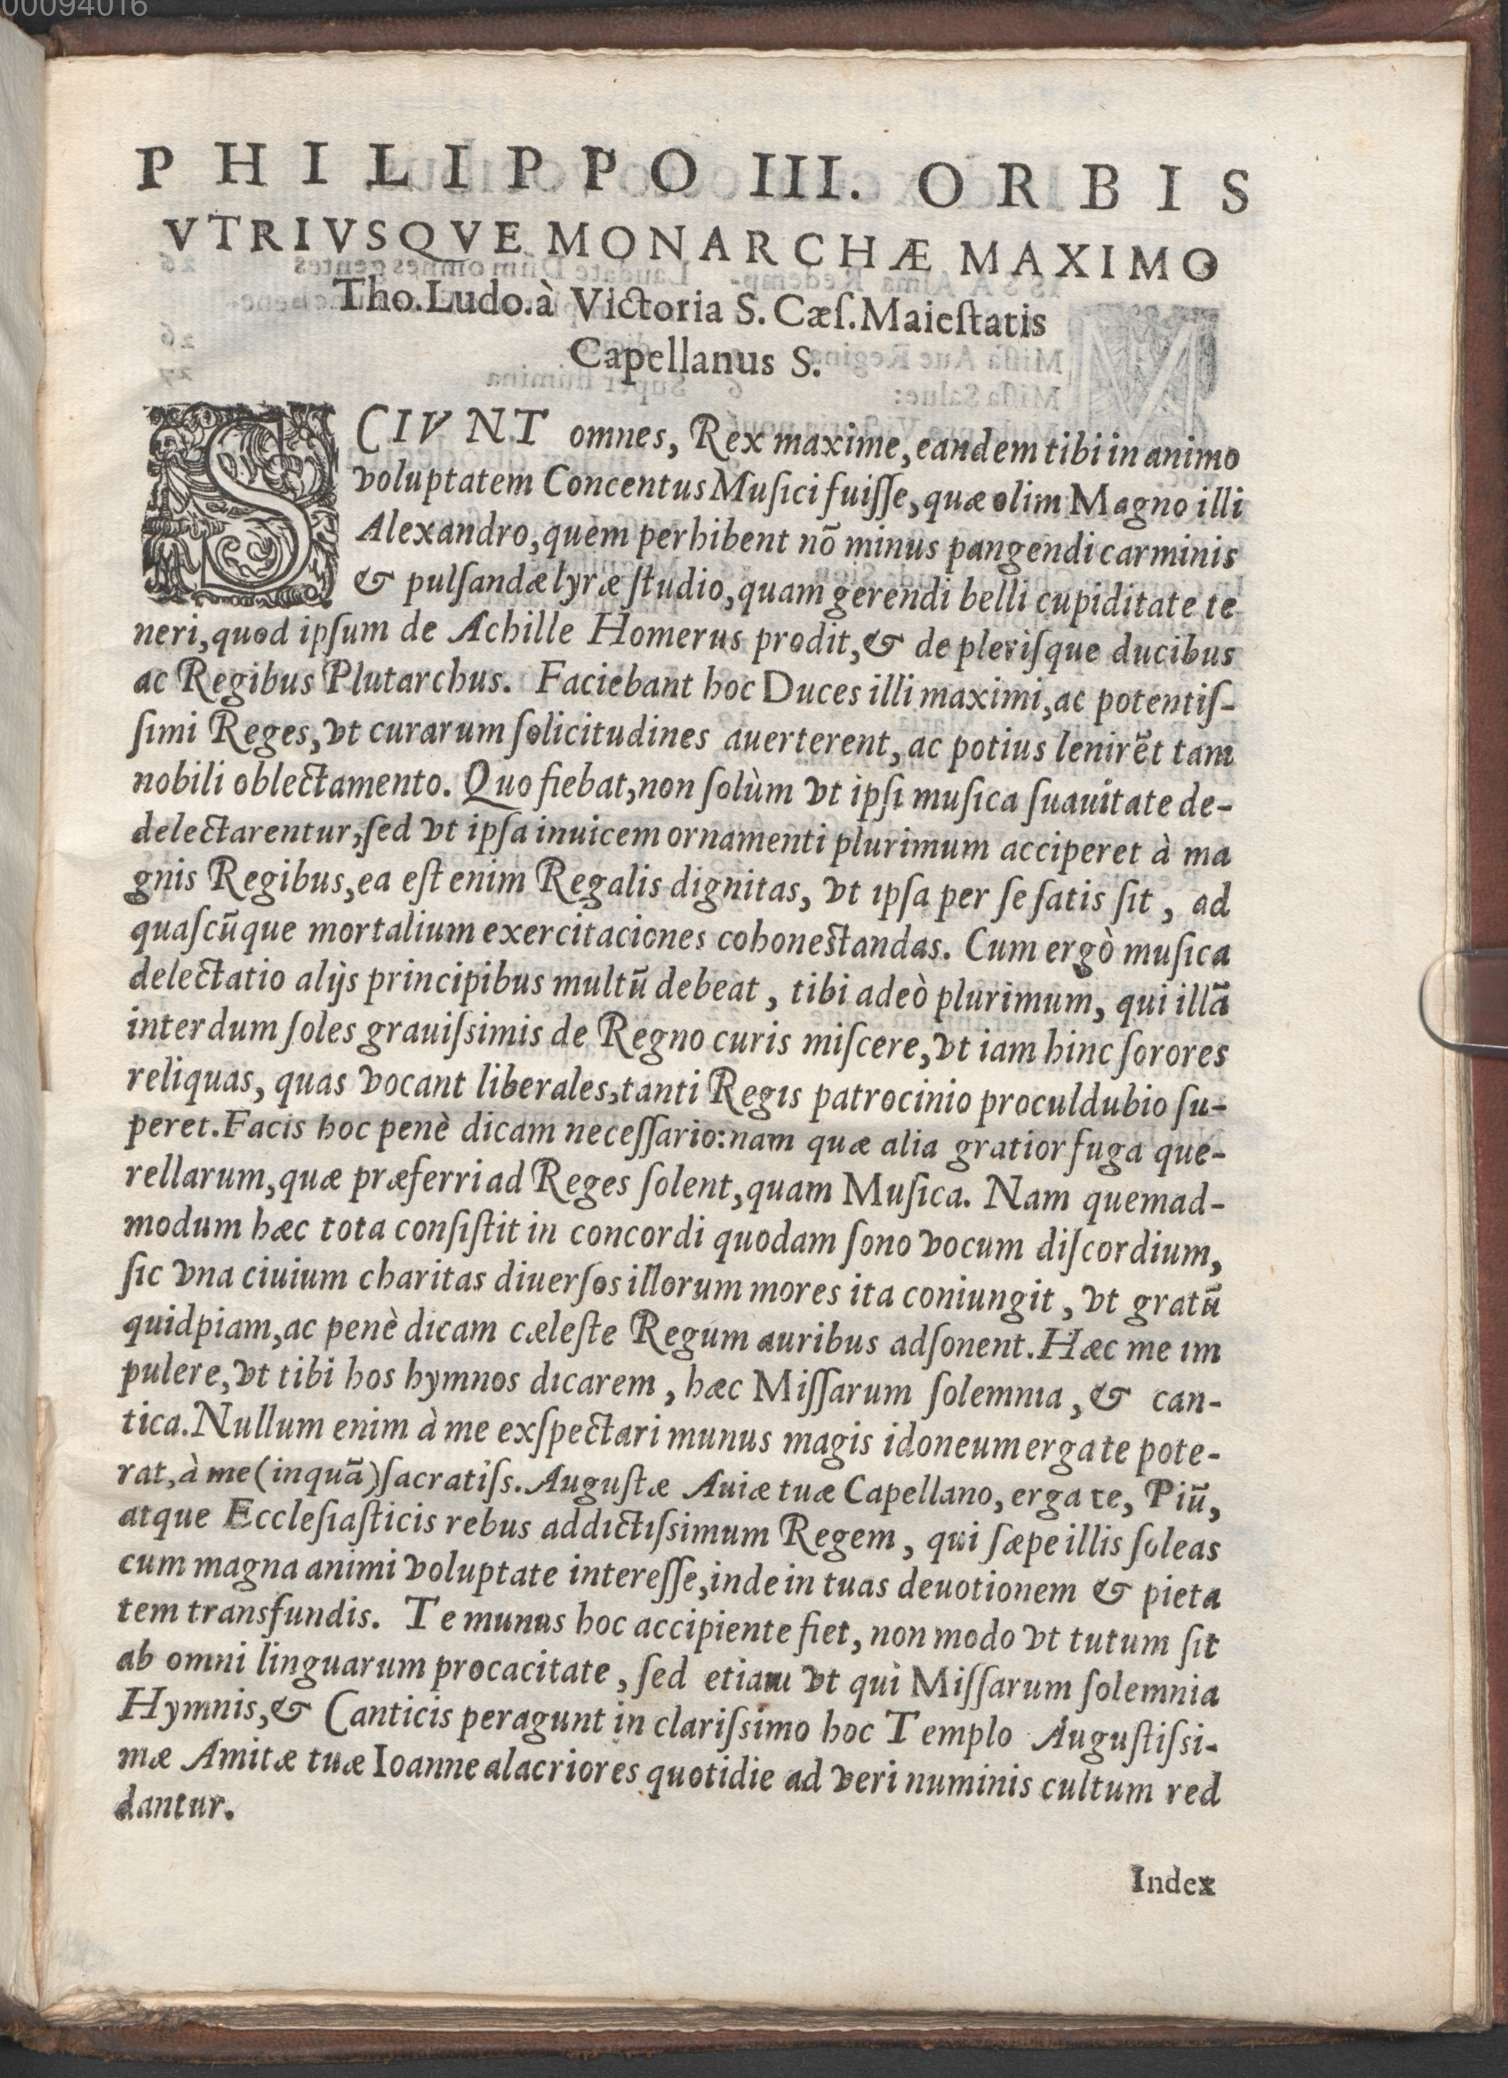 00094016
PHILIPPO III. ORBIS
VTRIVSQVE MONARCHÆ MAXIMO
Tho.Ludo.à Victoria S. Cæſ.Maieſtatis
Capellanus S.
SCIVNT omnes, Rex maxime, eandem tibi in animo
voluptatem Concentus Muſici fuiſſe, quæ olim Magno illi
Alexandro, quem perhibent nō minus pangendi carminis
& pulſandæ lyræ ſtudio, quam gerendi belli cupiditate te
neri, quod ipſum de Achille Homerus prodit, & de pleriſque ducibus
ac Regibus Plutarchus. Faciebant hoc Duces illi maximi, ac potentiſ-
ſimi Reges, vt curarum ſolicitudines auerterent, ac potius lenirēt tam
nobili oblectamento. Quo fiebat, non ſolùm vt ipſi muſica ſuauitate de-
delectarentur, ſed vt ipſa inuicem ornamenti plurimum acciperet à ma
gnis Regibus, ea eſt enim Regalis dignitas, vt ipſa per ſe ſatis ſit, ad
quaſcūque mortalium exercitaciones cohoneſtandas. Cum ergò muſica
delectatio alijs principibus multū debeat, tibi adeò plurimum, qui illā
interdum ſoles grauiſsimis de Regno curis miſcere, vt iam hinc ſorores
reliquas, quas vocant liberales, tanti Regis patrocinio proculdubio ſu-
peret. Facis hoc penè dicam neceſſario: nam quæ alia gratior fuga que-
rellarum, quæ præferri ad Reges ſolent, quam Muſica. Nam quemad-
modum hæc tota conſiſtit in concordi quodam ſono vocum diſcordium,
ſic vna ciuium charitas diuerſos illorum mores ita coniungit, vt gratū
quidpiam, ac penè dicam cæleſte Regum auribus adſonent. Hæc me im
pulere, vt tibi hos hymnos dicarem, hæc Miſſarum ſolemnia, & can-
tica. Nullum enim à me exſpectari munus magis idoneum erga te pote-
rat, à me (inquā) ſacratiſs. Auguſtæ Auiæ tuæ Capellano, erga te, Piū,
atque Eccleſiaſticis rebus addictiſsimum Regem, qui ſæpe illis ſoleas
cum magna animi voluptate intereſſe, inde in tuas deuotionem & pieta
tem transfundis. Te munus hoc accipiente fiet, non modo vt tutum ſit
ab omni linguarum procacitate, ſed etiam vt qui Miſſarum ſolemnia
Hymnis, & Canticis peragunt in clariſsimo hoc Templo Auguſtiſsi-
mæ Amitæ tuæ Ioanne alacriores quotidie ad veri numinis cultum red
dantur.
Index